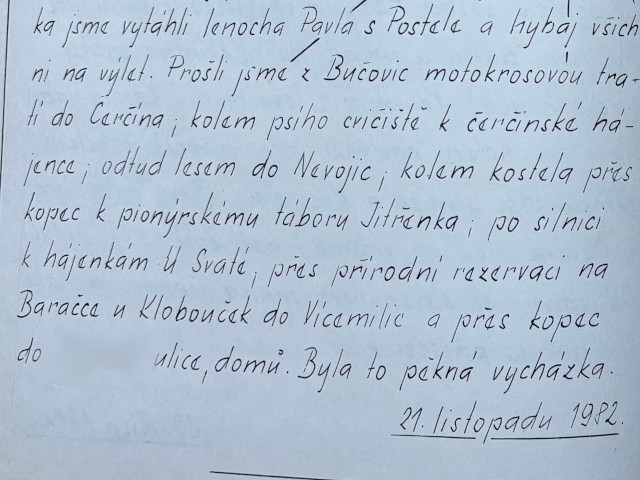 ka jsme vytáhli lenocha Pavla s Postele a hybaj všich
ni na výlet. Prošli jsme z Bučovic motokrosovou tra-
tí do Čerčína, kolem psího cvičiště k čerčinské há-
jence, odtud lesem do Nevojic, kolem kostela přes
kopec k pionýrskému táboru Jitřenka, po silnici
k hájenkám U Svaté, přes přírodní rezervaci na
Baračce u Klobouček do Vícemilic a přes kopec
do ulice, domů. Byla to pěkná vycházka.
21. listopadu 1982.